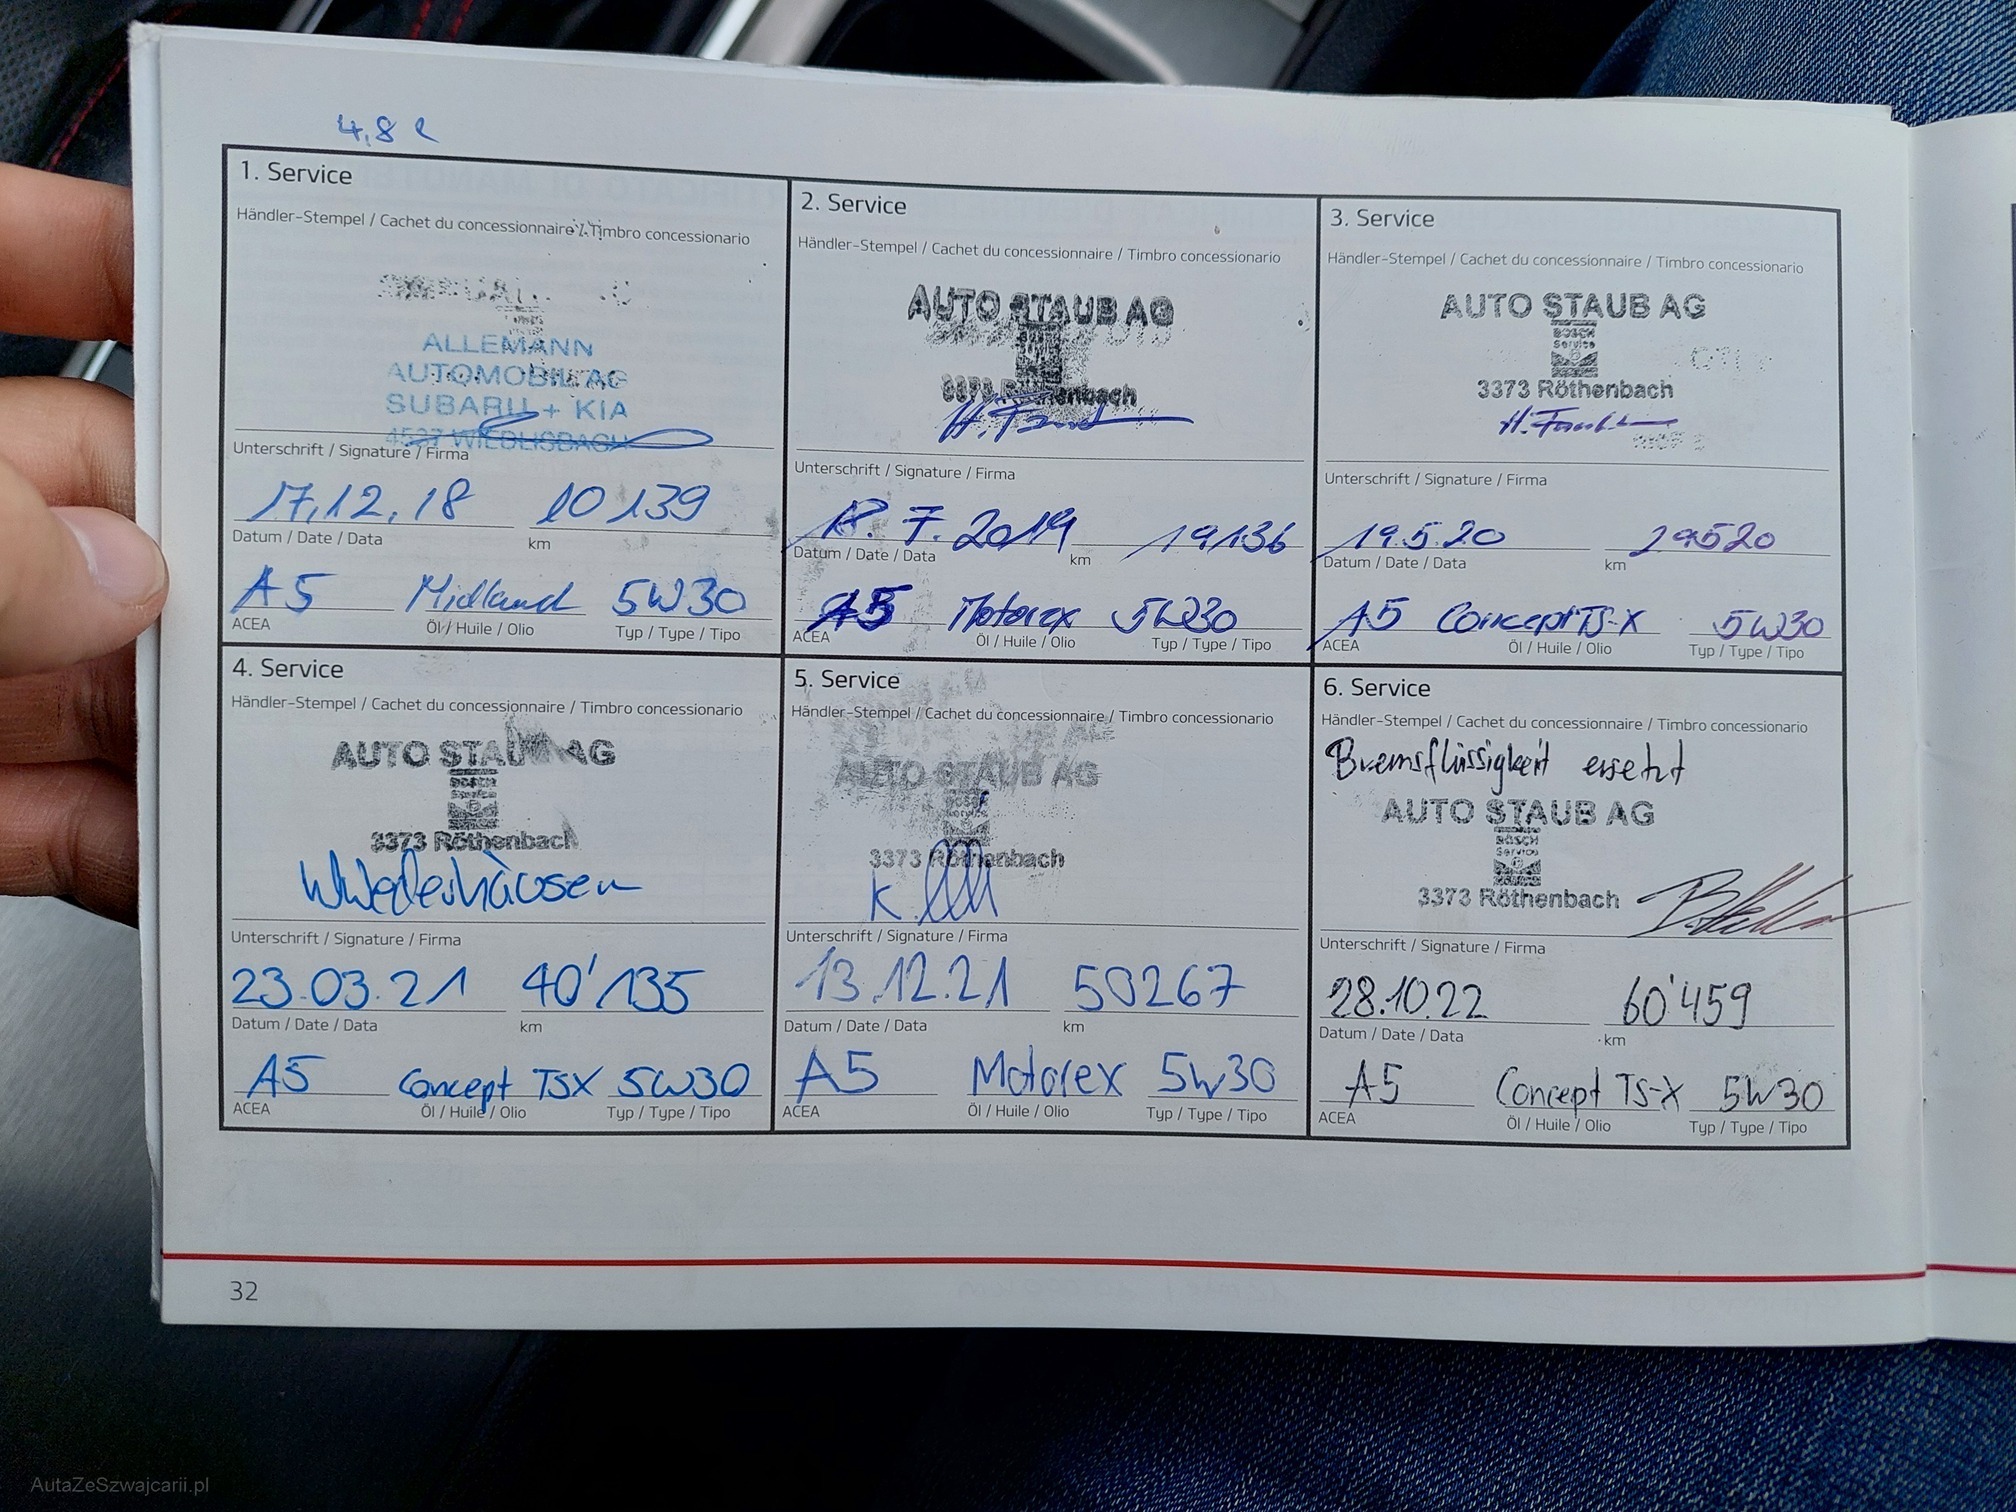 4,8 l
1. Service
Händler-Stempel / Cachet du concessionnaire / Timbro concessionario
ALLEMANN
AUTOMOBILE AG
SUBARU + KIA
4537 WIEDLISBACH
Unterschrift / Signature / Firma
17.12.18 10139
Datum / Date / Data km
A5 Midland 5W30
ACEA Öl / Huile / Olio Typ / Type / Tipo
2. Service
Händler-Stempel / Cachet du concessionnaire / Timbro concessionario
AUTO STAUB AG
3373 Röthenbach
Unterschrift / Signature / Firma
18.7.2019 19136
Datum / Date / Data km
A5 Motorex 5W30
ACEA Öl / Huile / Olio Typ / Type / Tipo
3. Service
Händler-Stempel / Cachet du concessionnaire / Timbro concessionario
AUTO STAUB AG
BOSCH
Service
3373 Röthenbach
Unterschrift / Signature / Firma
19.5.20 29520
Datum / Date / Data km
A5 Concept TS-X 5W30
ACEA Öl / Huile / Olio Typ / Type / Tipo
4. Service
Händler-Stempel / Cachet du concessionnaire / Timbro concessionario
AUTO STAUB AG
3373 Röthenbach
Unterschrift / Signature / Firma
23.03.21 40'135
Datum / Date / Data km
A5 Concept TSX 5W30
ACEA Öl / Huile / Olio Typ / Type / Tipo
5. Service
Händler-Stempel / Cachet du concessionnaire / Timbro concessionario
AUTO STAUB AG
3373 Röthenbach
Unterschrift / Signature / Firma
13.12.21 50267
Datum / Date / Data km
A5 Motorex 5W30
ACEA Öl / Huile / Olio Typ / Type / Tipo
6. Service
Händler-Stempel / Cachet du concessionnaire / Timbro concessionario
Bremsflüssigkeit ersetzt
AUTO STAUB AG
BOSCH
Service
3373 Röthenbach
Unterschrift / Signature / Firma
28.10.22 60'459
Datum / Date / Data km
A5 Concept TS-X 5W30
ACEA Öl / Huile / Olio Typ / Type / Tipo
32
AutaZeSzwajcarii.pl